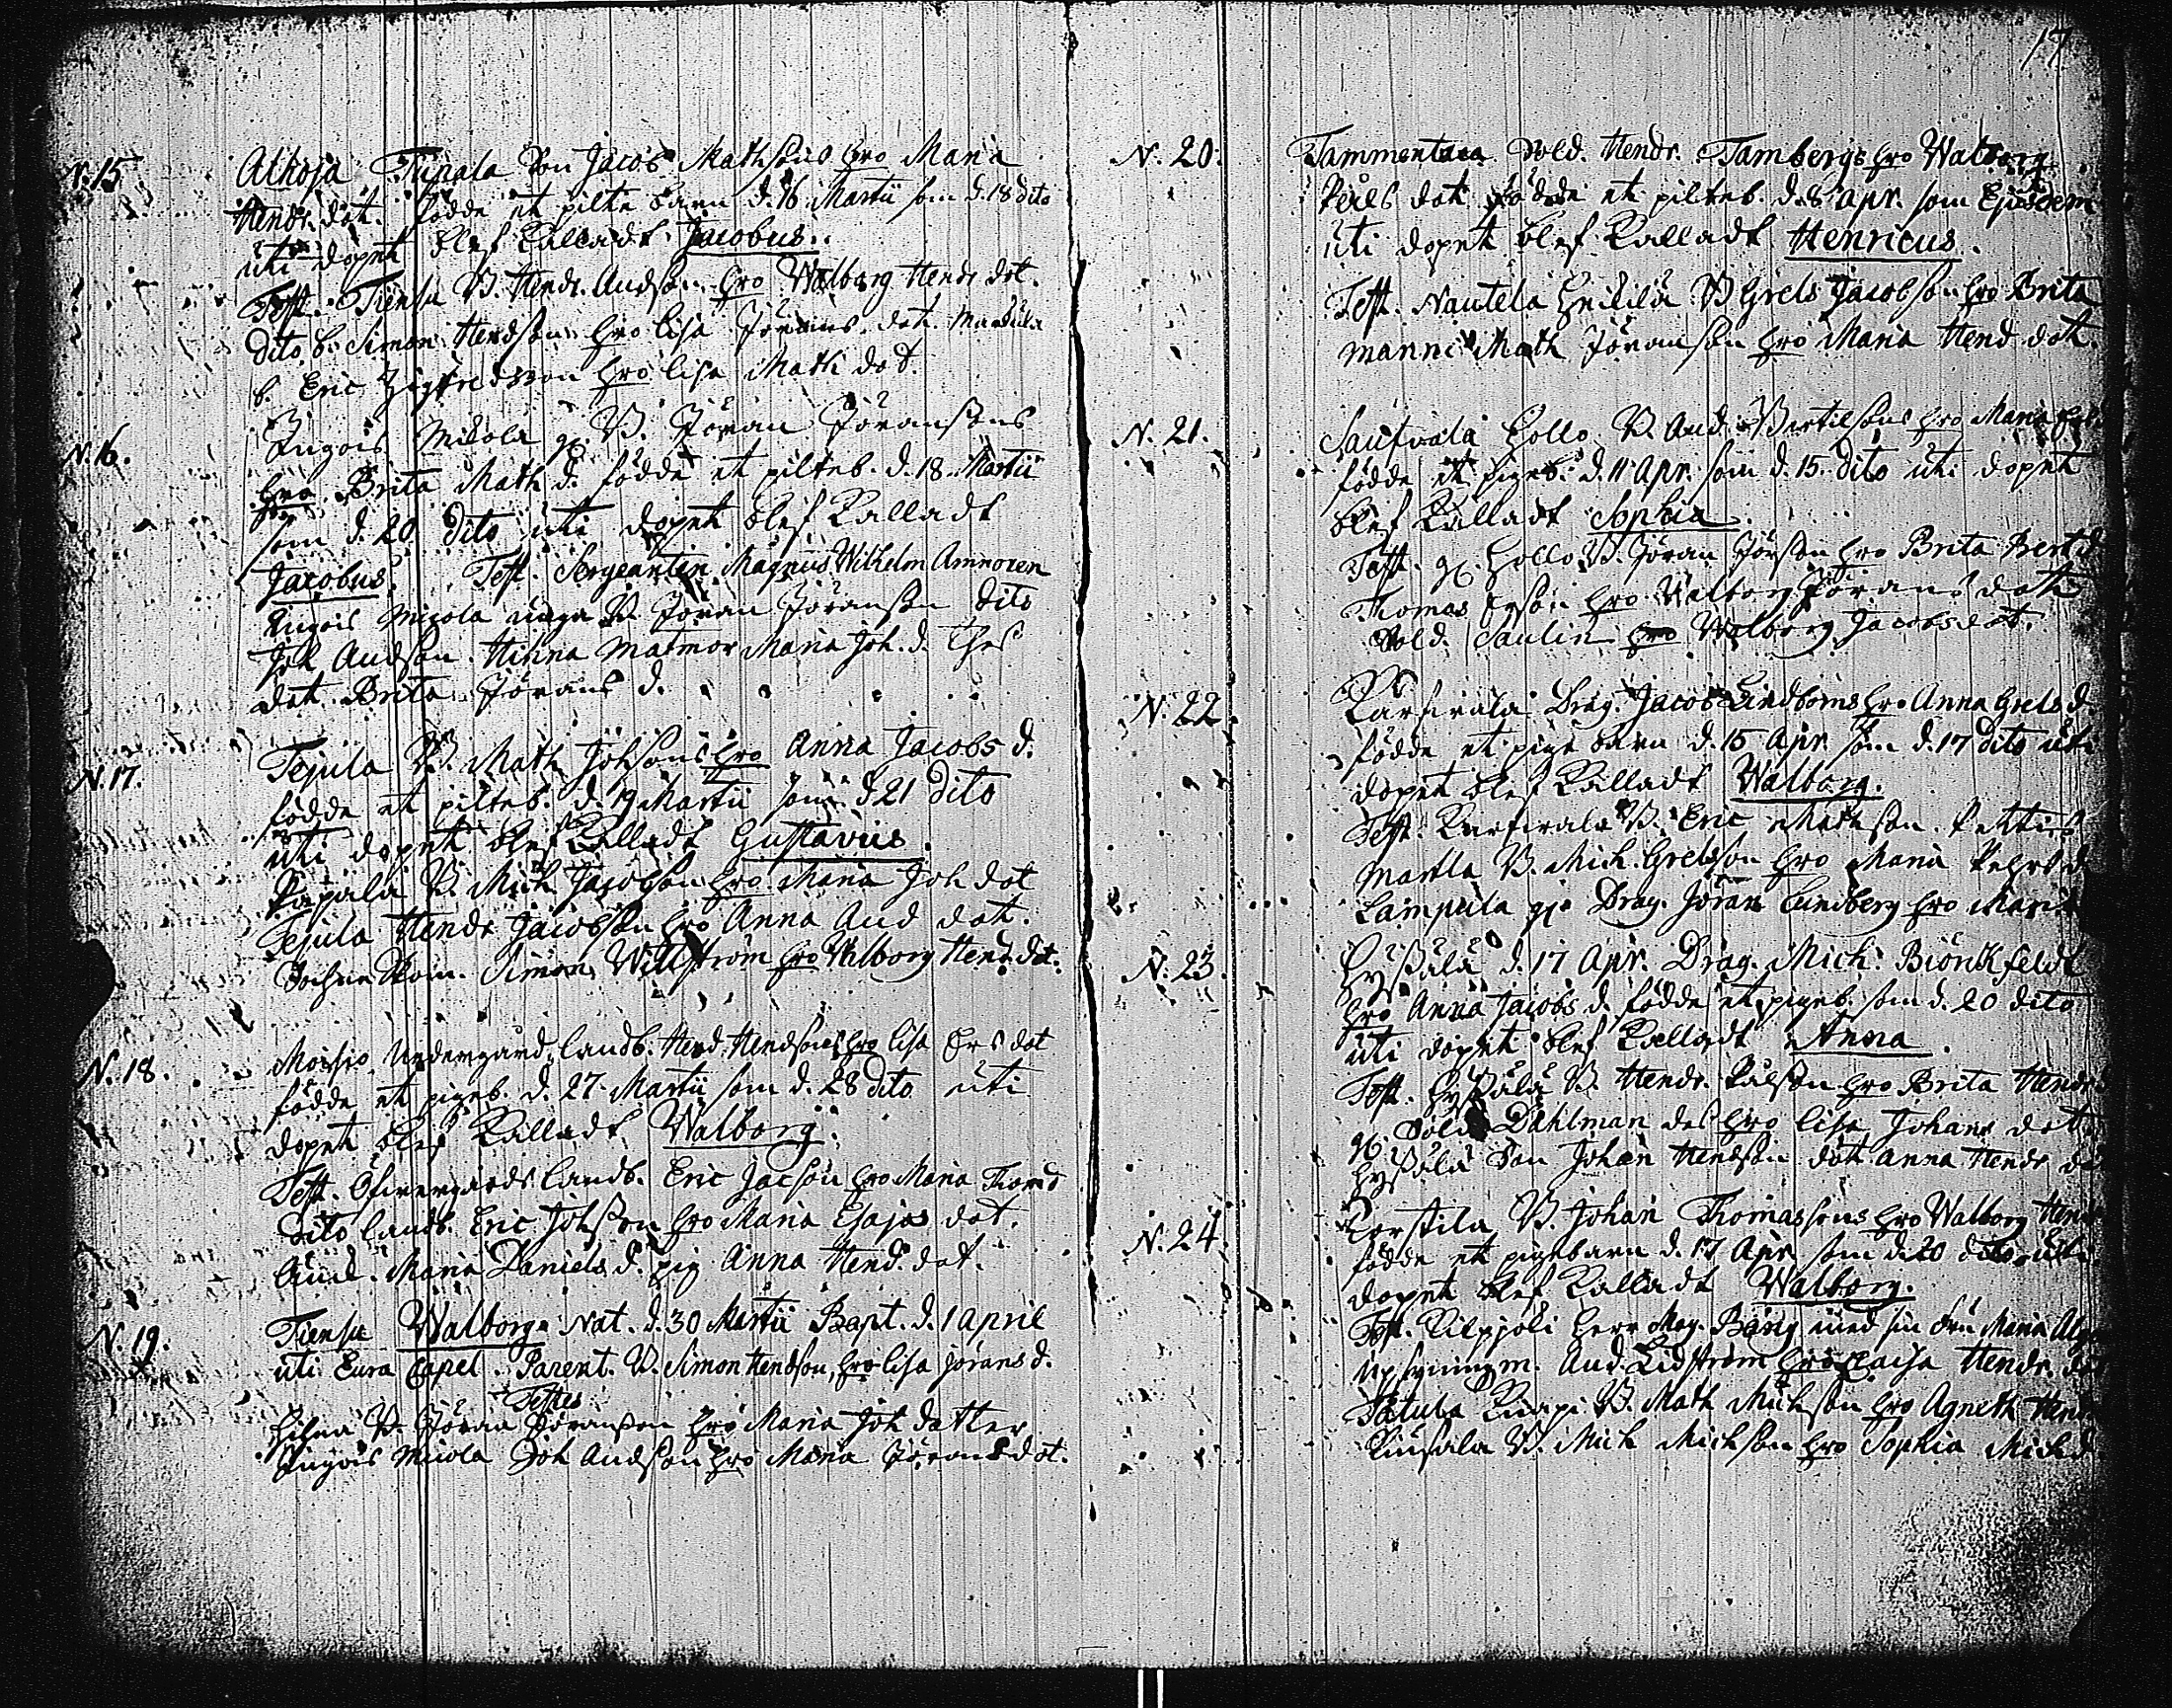 17
N. 15
Athoja Tupala son Jacob Mathsons hro Maria
Hendr. dot. födde et pilte barn d. 16 Martii som d. 18 dito
uti dopet blef kalladt Jacobus.
Test. Tiensu B. Hendr. Andson hro Walborg Hendr dot.
dito b. Simon Hendson hro Lisa Jörans dot.
b. Eric Zigfredsson hro Lisa Math dot.
N. 16.
Kugois Mikola B. Jöran Jöransons
hro Brita Math d. födde et pilteb. d. 18 Martii
som d. 20 dito uti dopet blef kalladt
Jacobus. Test. Sergeanten Magnus Wilhelm Amnoren
Kugois Micola unga B. Jöran Jöranson dito
Joh Andson. Hinna Matmor Maria Joh. d.
dot. Brita Jörans d.
N. 17.
Tejula B. Math Johsons hro Anna Jacobs d.
födde et pilteb. d. 19 Martii som d. 21 dito
uti dopet blef kalladt Gustavus.
Papala B. Mich Jacobson hro Maria Joh dot
Tejula Hendr Jacobson hro Anna And dot.
Simon Willström hro Walborg Hend. dot.
N. 18.
Moisio Nedergård landb. Hend. Hendsons hro Lisa Ers dot
födde et pigeb. d. 27 Martii som d. 28 dito uti
dopet blef kalladt Walborg.
Test. Öfwergårds landb. Eric Jacson hro Maria Thoms
dito landb. Eric Johson hro Maria Esajas dot.
Maria Daniels d. pig. Anna Hend. dot.
N. 19.
Tiensu Walborg Nat. d. 30 Martii Bapt. d. 1 April
uti Eura Capel. Parent. B. Simon Hendson, hro Lisa Jörans d.
Testes
B. Jöran Jöranson hro Maria Joh datter
Kugois Micola Joh Andson hro Maria Jörans dot.
N. 20.
Tammentaca Sold. Hendr. Tambergs hro Walborg
Påls dot. födde et pilteb. d. 8 Apr. som Ejusdem
uti dopet blef kalladt Henricus.
Test. Nautela B Grels Jacobson hro Brita
Math Jöranson hro Maria Hend dot.
N. 21.
Hollo B. And. Bertilsons hro Maria
födde et pigeb. d. 11 Apr. som d. 15 dito uti dopet
blef kalladt Sophia.
Test. Hollo B. Jöran Jörson hro Brita Bertil
Thomas Erson hro Walborg Jörans dot.
Sold. Saulin hro Walborg Jacobs dot.
N. 22.
Karfwala Drag. Jacob Lindboms hro Anna Grels d.
födde et pige barn d. 15 Apr. som d. 17 dito uti
dopet blef kalladt Walborg.
Test. Karfwala B. Eric Mathson.
Martla B. Mich. Grelsson hro Maria Pehrs d.
Lampula Drag. Jöran Lundberg hro Maria
N. 23.
d. 17 Apr. Drag. Mich. Biörckfeldt
hro Anna Jacobs d. födde et pigeb. som d. 20 dito
uti dopet blef kalladt Anna.
Test. B. Hendr. Pålson hro Brita Hendr.
Sold. Dahlman des hro Lisa Johans dot.
son Johan Hendson dot. Anna Hendr
N. 24.
Korstila B. Johan Thomassons hro Walborg Hend
födde et pigebarn d. 17 Apr. som d. 20 dito uti
dopet blef kalladt Walborg.
Test. Kilpjoki Herr Mag. Berg med sin Fru Maria
And. Lidström hro Caisa Hendr.
Patula Knapi B. Math Mickson hro Agneth Hend
B. Mich Mickson hro Sophia Mich d.